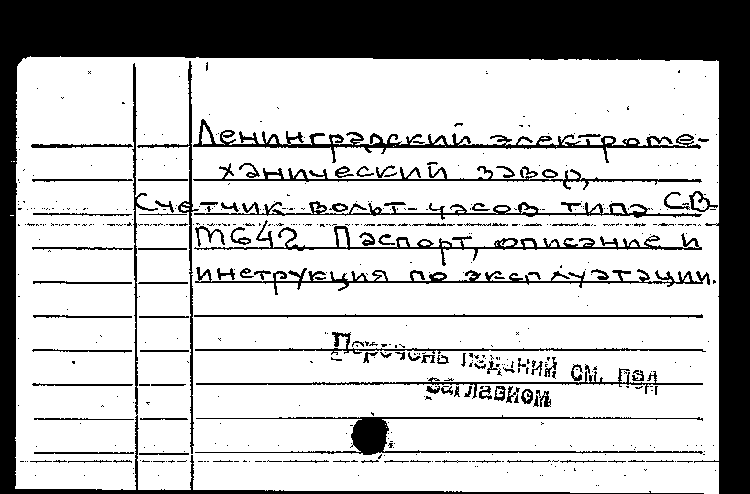 Ленинградский электроме-
ханический завод,
Счетчик вольт-часов типа СВ-
М642 Паспорт, описание и
инструкция по эксплуатации.
Перечень изданий см. под
заглавием